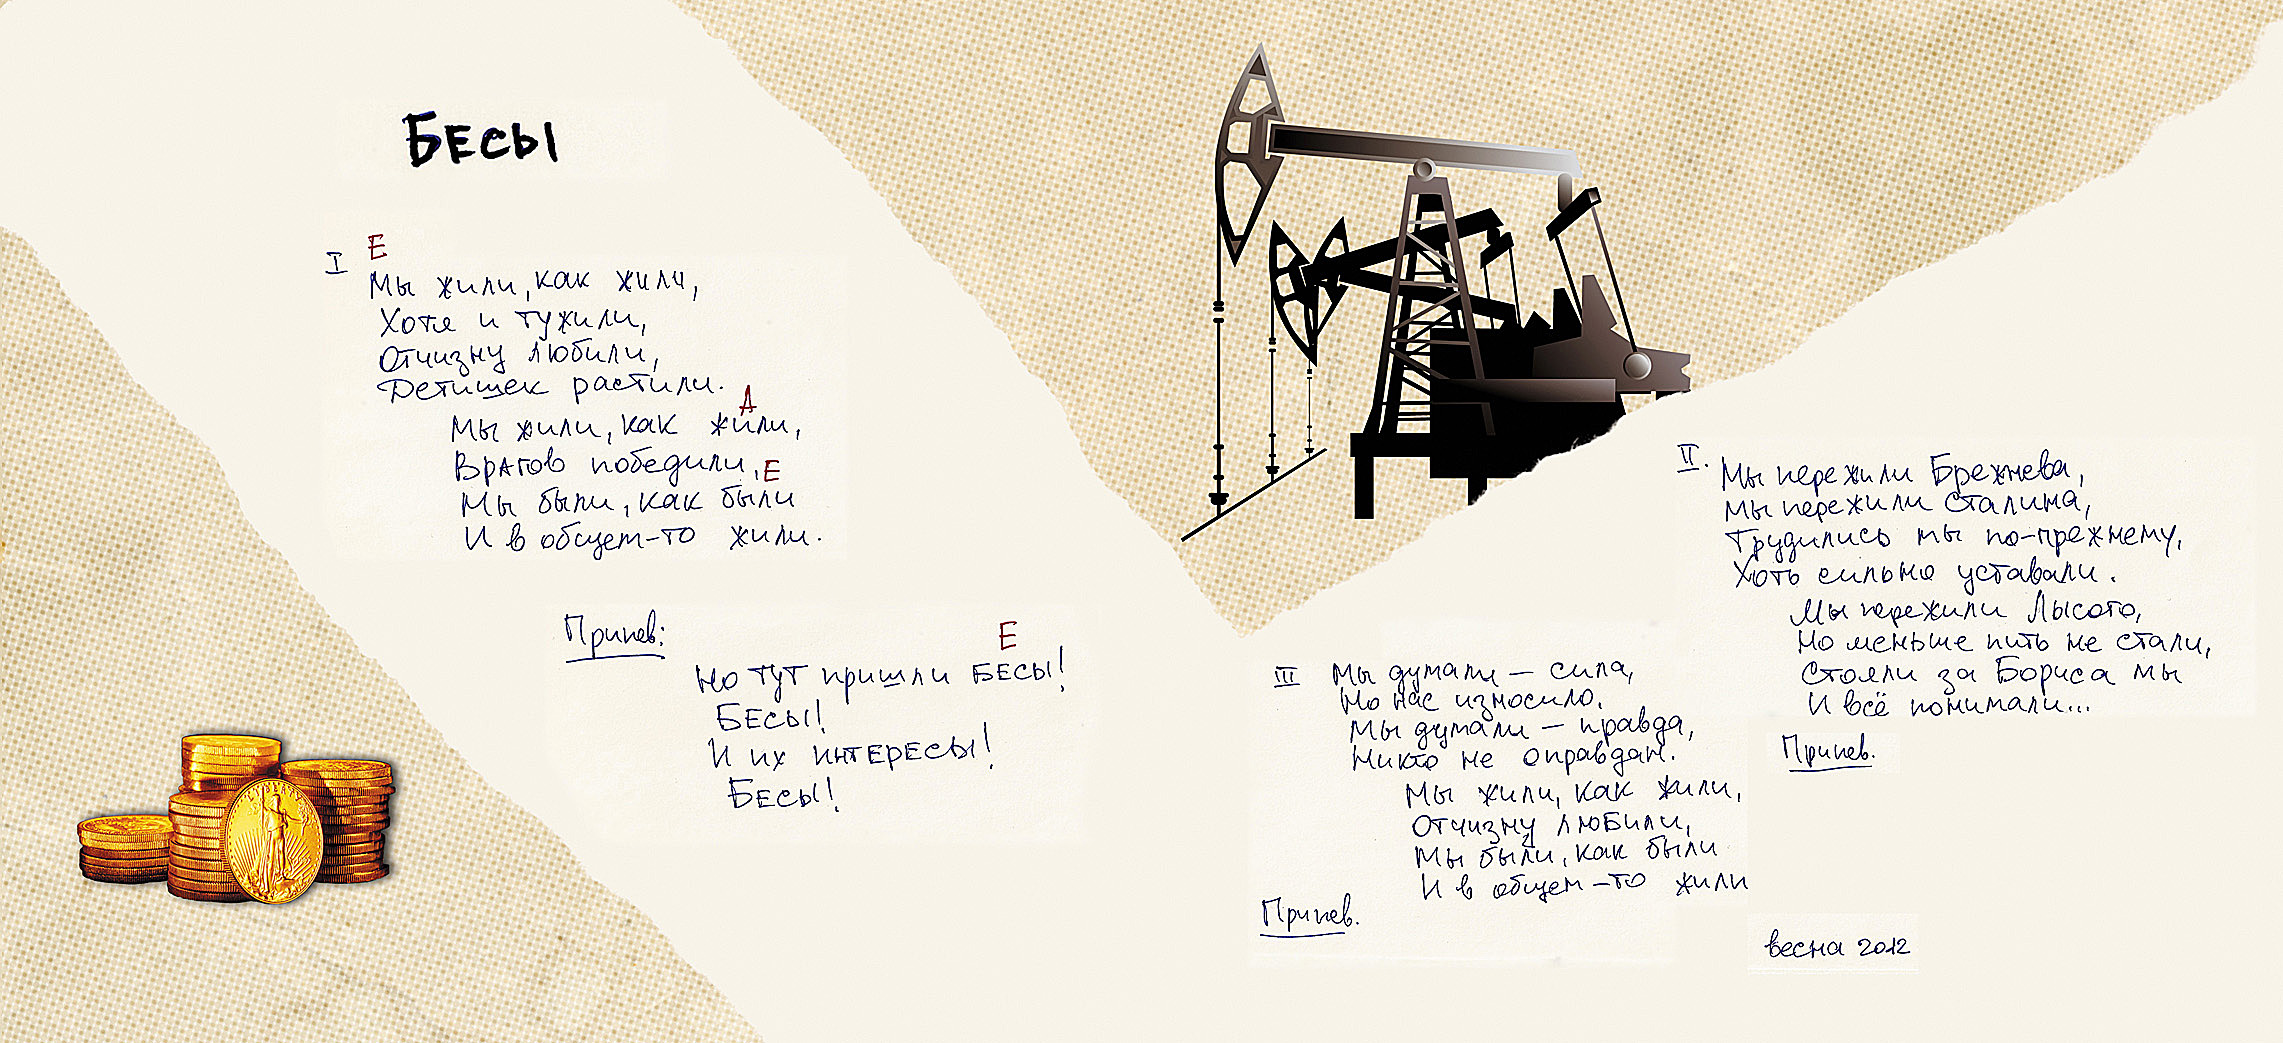 БЕСЫ
I
E
Мы жили, как жили,
Хотя и тужили,
Отчизну любили,
Детишек растили.
A
Мы жили, как жили,
Врагов победили,
E
Мы были, как были
И в общем-то жили.
Припев:
E
Но тут пришли БЕСЫ!
БЕСЫ!
И их ИНТЕРЕСЫ!
БЕСЫ!
II.
Мы пережили Брежнева,
Мы пережили Сталина,
Трудились мы по-прежнему,
Хоть сильно уставали.
Мы пережили Лысого,
Но меньше пить не стали,
Стояли за Бориса мы
И всё понимали...
Припев.
III
Мы думали – сила,
Но нас износило.
Мы думали – правда,
Никто не оправдан.
Мы жили, как жили,
Отчизну любили,
Мы были, как были
И в общем-то жили
Припев.
весна 2012